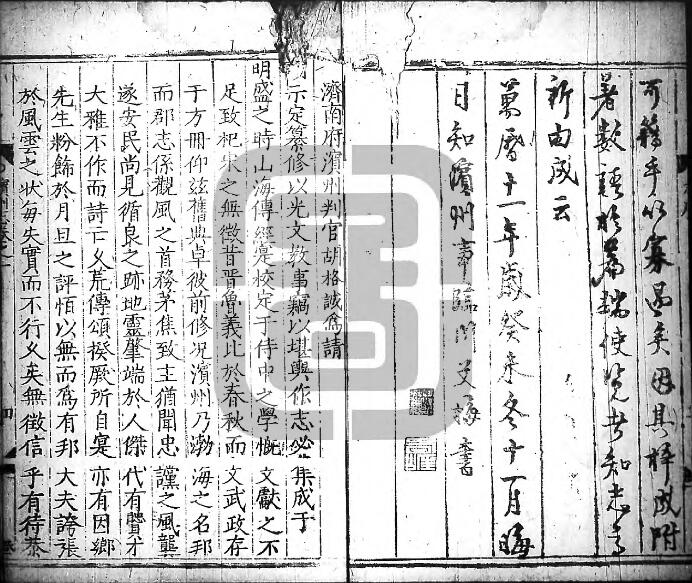 可藉手以寡過矣因其梓成附
著數語於篇端使覽者知志之
所由成云
萬曆十一年歲癸未冬十一月晦
日知濱州事臨川艾梅書
濟南府濱州判官胡格誠為請
示定纂修以光文教事竊以堪輿作志必集成于
明盛之時山海傳經寔校定于侍中之學慨文獻之不
足致杞宋之無徵昔晋魯義比於春秋而文武政存
于方冊仰茲舊典卓彼前修况濱州乃渤海之名邦
而郡志係觀風之首務茅焦致主猶聞忠讜之風龔
遂安民尚見循良之跡地靈肇端於人傑代有賢才
大雅不作而詩亡义荒傳頌揆厥所自寔亦有因鄉
先生粉飾於月旦之評怕以無而為有邦大夫誇張
於風雲之狀每失實而不行义矣無徵信乎有待恭